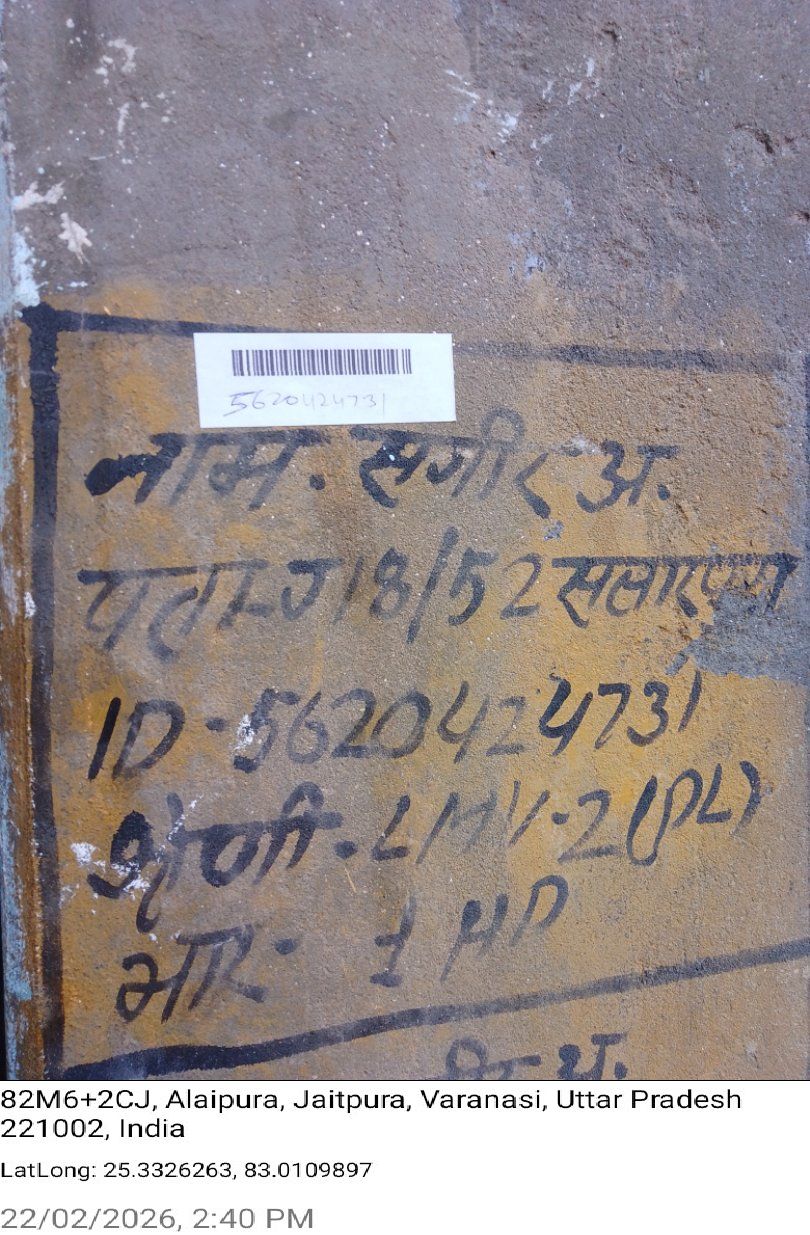 5620424731
नाम. सगीर अ.
पता-J18/52 सलारपुरा
ID-5620424731
श्रेणी. LMV-2(PL)
भार- 1 HP
82M6+2CJ, Alaipura, Jaitpura, Varanasi, Uttar Pradesh
221002, India
LatLong: 25.3326263, 83.0109897
22/02/2026, 2:40 PM